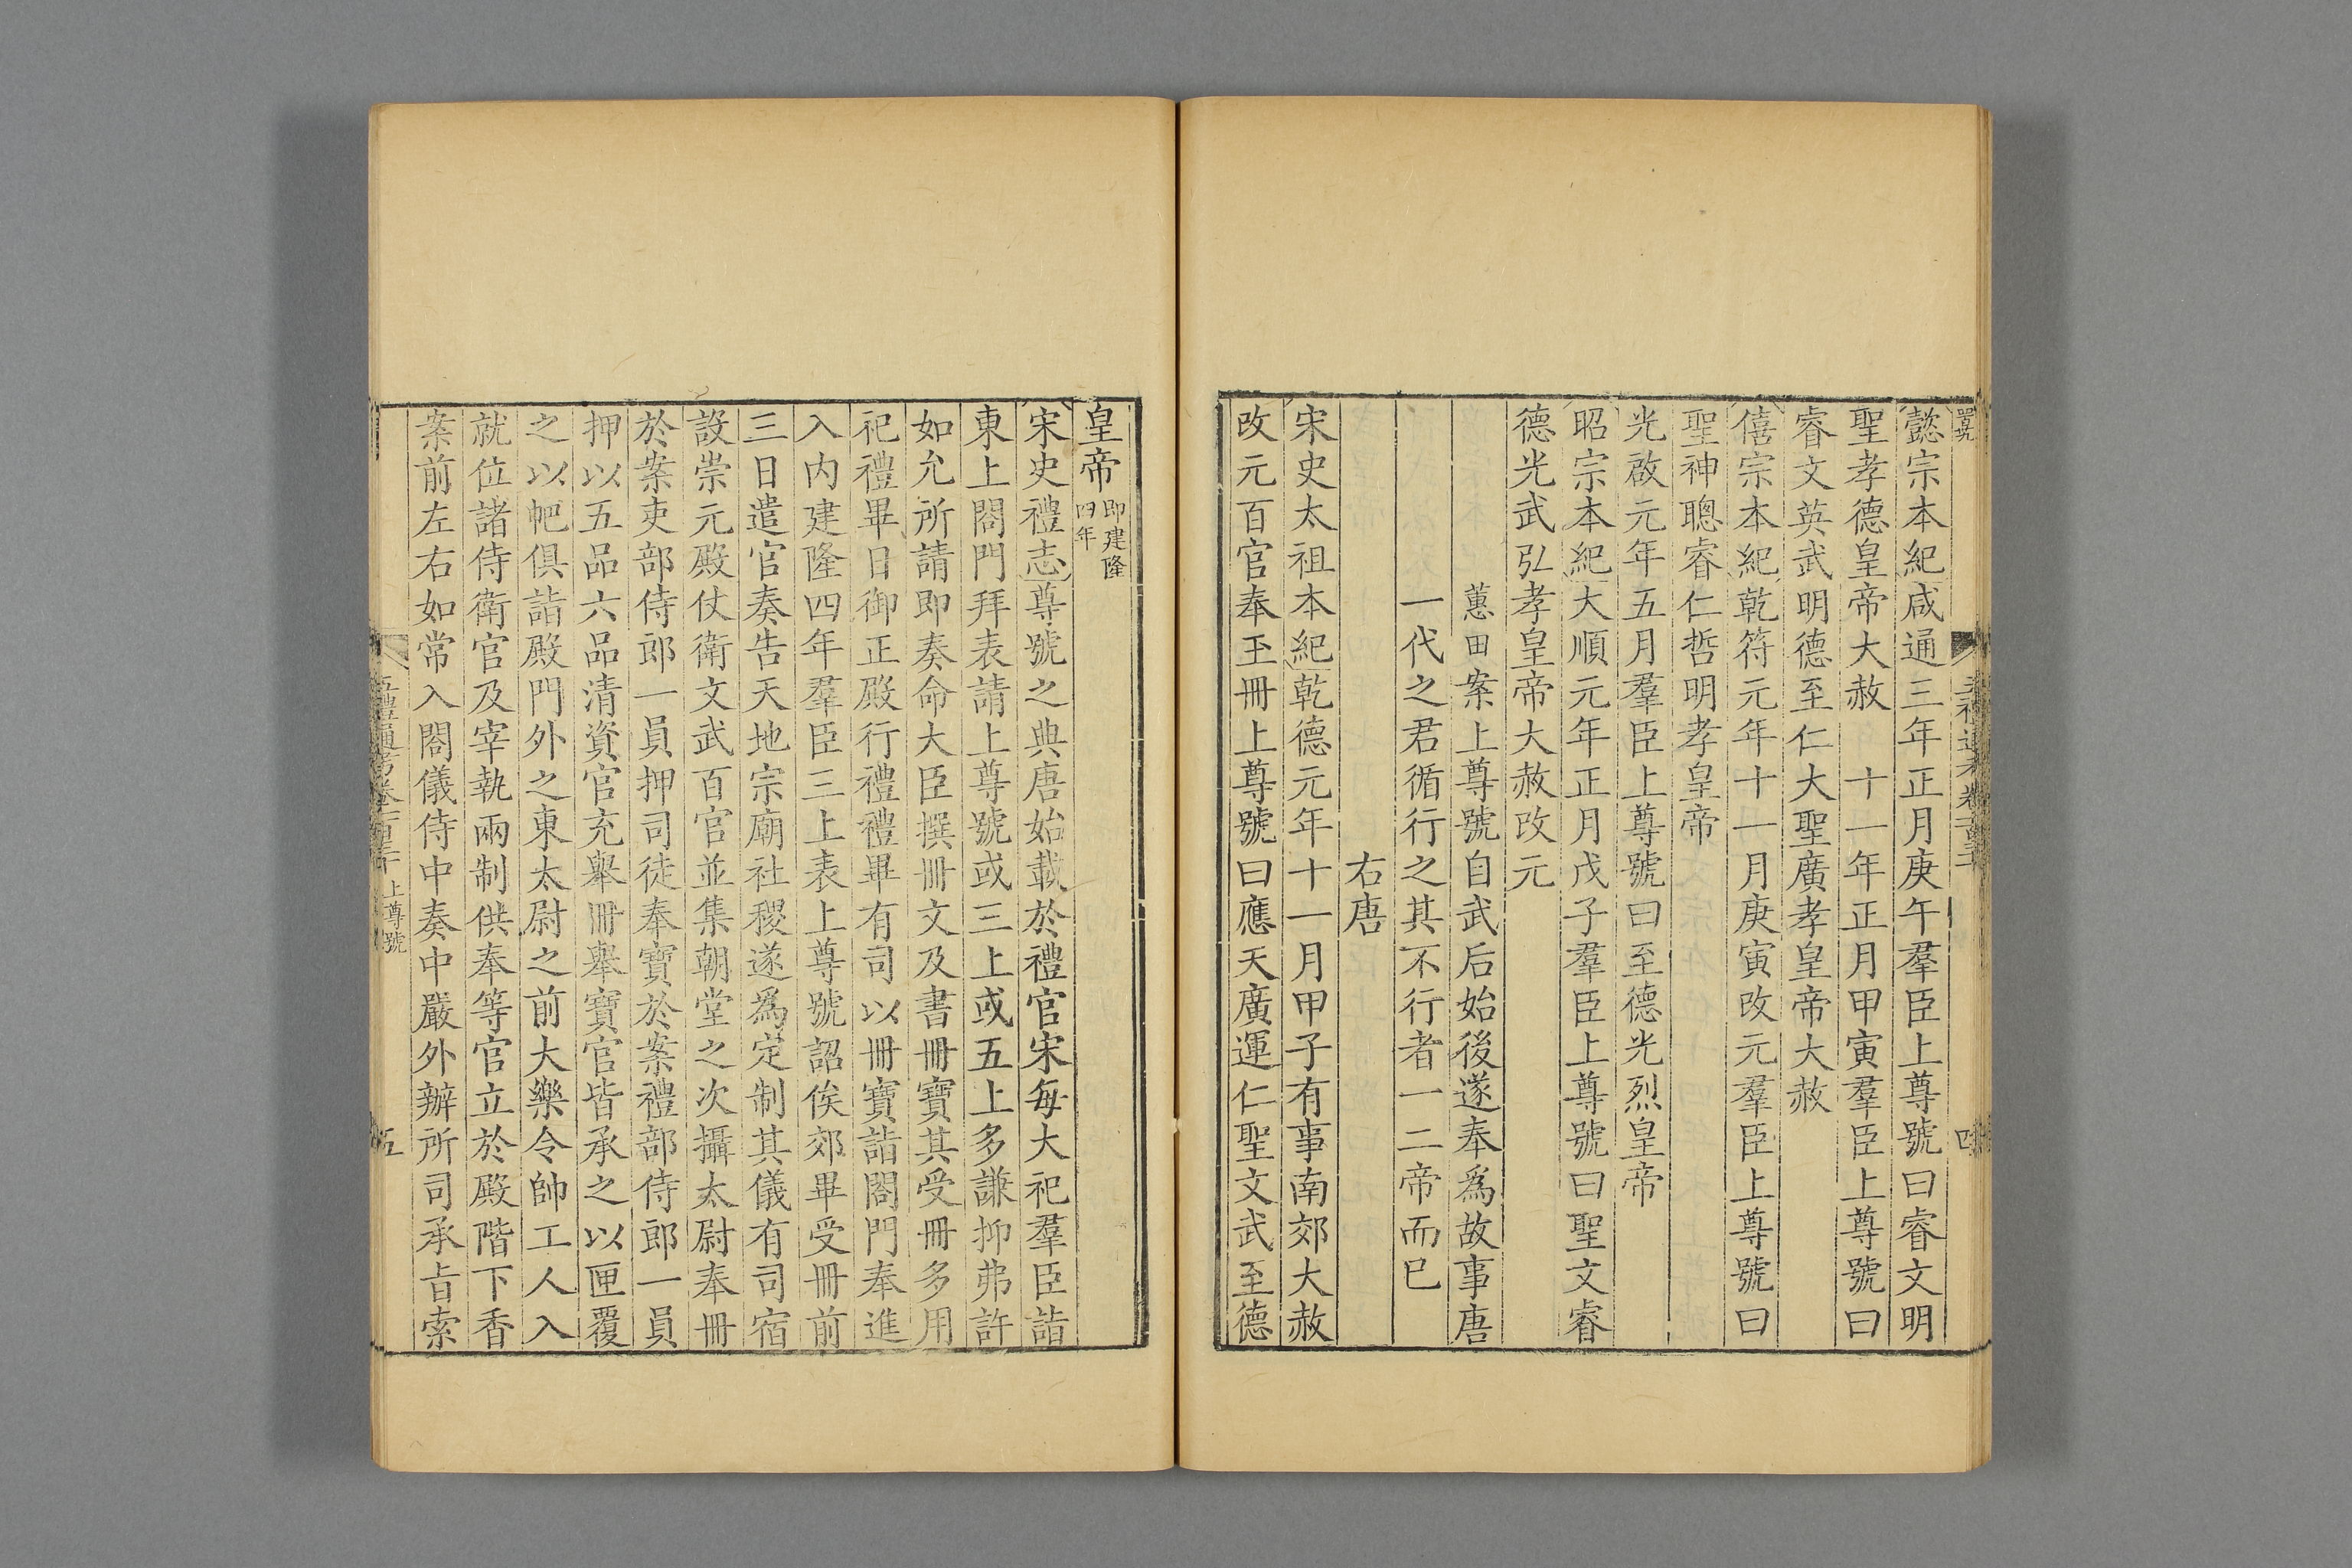 懿宗本紀咸通三年正月庚午羣臣上尊號曰睿文明
聖孝德皇帝大赦　十一年正月甲寅羣臣上尊號曰
睿文英武明德至仁大聖廣孝皇帝大赦
僖宗本紀乾符元年十一月庚寅改元羣臣上尊號曰
聖神聰睿仁哲明孝皇帝
光啟元年五月羣臣上尊號曰至德光烈皇帝
昭宗本紀大順元年正月戊子羣臣上尊號曰聖文睿
德光武弘孝皇帝大赦改元
蕙田案上尊號自武后始後遂奉爲故事唐
一代之君循行之其不行者一二帝而已
右唐
宋史太祖本紀乾德元年十一月甲子有事南郊大赦
改元百官奉玉冊上尊號曰應天廣運仁聖文武至德
皇帝即建隆四年
宋史禮志尊號之典唐始載於禮官宋每大祀羣臣詣
東上閤門拜表請上尊號或三上或五上多謙抑弗許
如允所請即奏命大臣撰冊文及書冊寶其受冊多用
祀禮畢日御正殿行禮禮畢有司以冊寶詣閤門奉進
入内建隆四年羣臣三上表上尊號詔俟郊畢受冊前
三日遣官奏告天地宗廟社稷遂爲定制其儀有司宿
設崇元殿仗衛文武百官並集朝堂之次攝太尉奉冊
於案吏部侍郎一員押司徒奉寶於案禮部侍郎一員
押以五品六品清資官充舉冊舉寶官皆承之以匣覆
之以帊俱詣殿門外之東太尉之前大樂令帥工人入
就位諸侍衛官及宰執兩制供奉等官立於殿階下香
案前左右如常入閤儀侍中奏中嚴外辦所司承旨索
五禮通考卷一百二十　上尊號　五